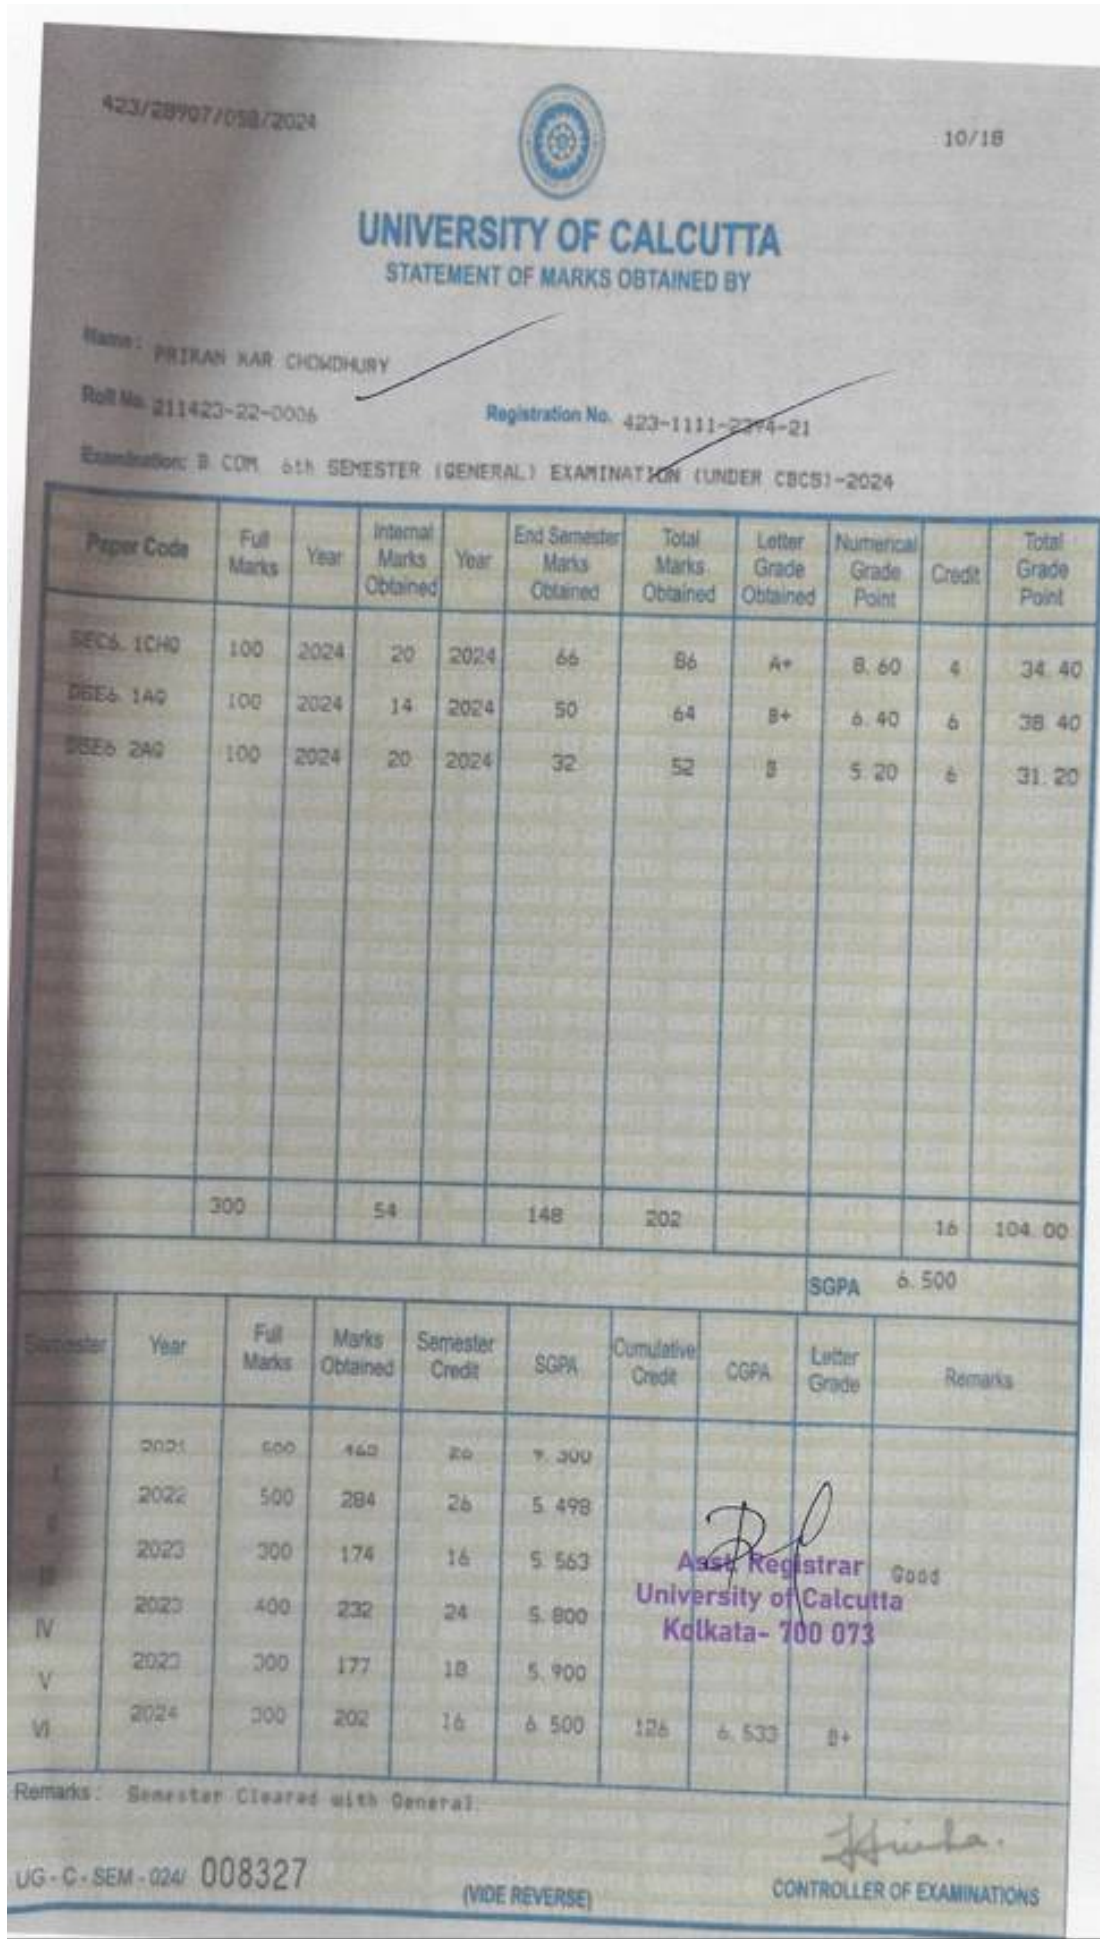 423/28907/058/2024
10/18
UNIVERSITY OF CALCUTTA
STATEMENT OF MARKS OBTAINED BY
Name: PRIKAN KAR CHOWDHURY
Roll No. 211423-22-0006 Registration No. 423-1111-2394-21
Examination: B COM 6th SEMESTER (GENERAL) EXAMINATION (UNDER CBCS)-2024
Paper Code Full Marks Year Internal Marks Obtained Year End Semester Marks Obtained Total Marks Obtained Letter Grade Obtained Numerical Grade Point Credit Total Grade Point
SEC6. 1CHG 100 2024 20 2024 66 86 A+ 8. 60 4 34. 40
DSE6. 1AG 100 2024 14 2024 50 64 B+ 6. 40 6 38 40
DSE6 2AG 100 2024 20 2024 32 52 B 5. 20 6 31. 20
300 54 148 202 16 104. 00
SGPA 6. 500
Semester Year Full Marks Marks Obtained Semester Credit SGPA Cumulative Credit CGPA Letter Grade Remarks
I 2021 26 9. 300
II 2022 500 284 26 5. 498
III 2023 300 174 16 5. 563 Good
IV 2023 400 232 24 5. 800
V 2023 300 177 18 5. 900
VI 2024 300 202 16 6. 500 126 6. 533 B+
Asst. Registrar
University of Calcutta
Kolkata- 700 073
Remarks: Semester Cleared with General.
UG - C - SEM - 024/ 008327
(VIDE REVERSE)
CONTROLLER OF EXAMINATIONS